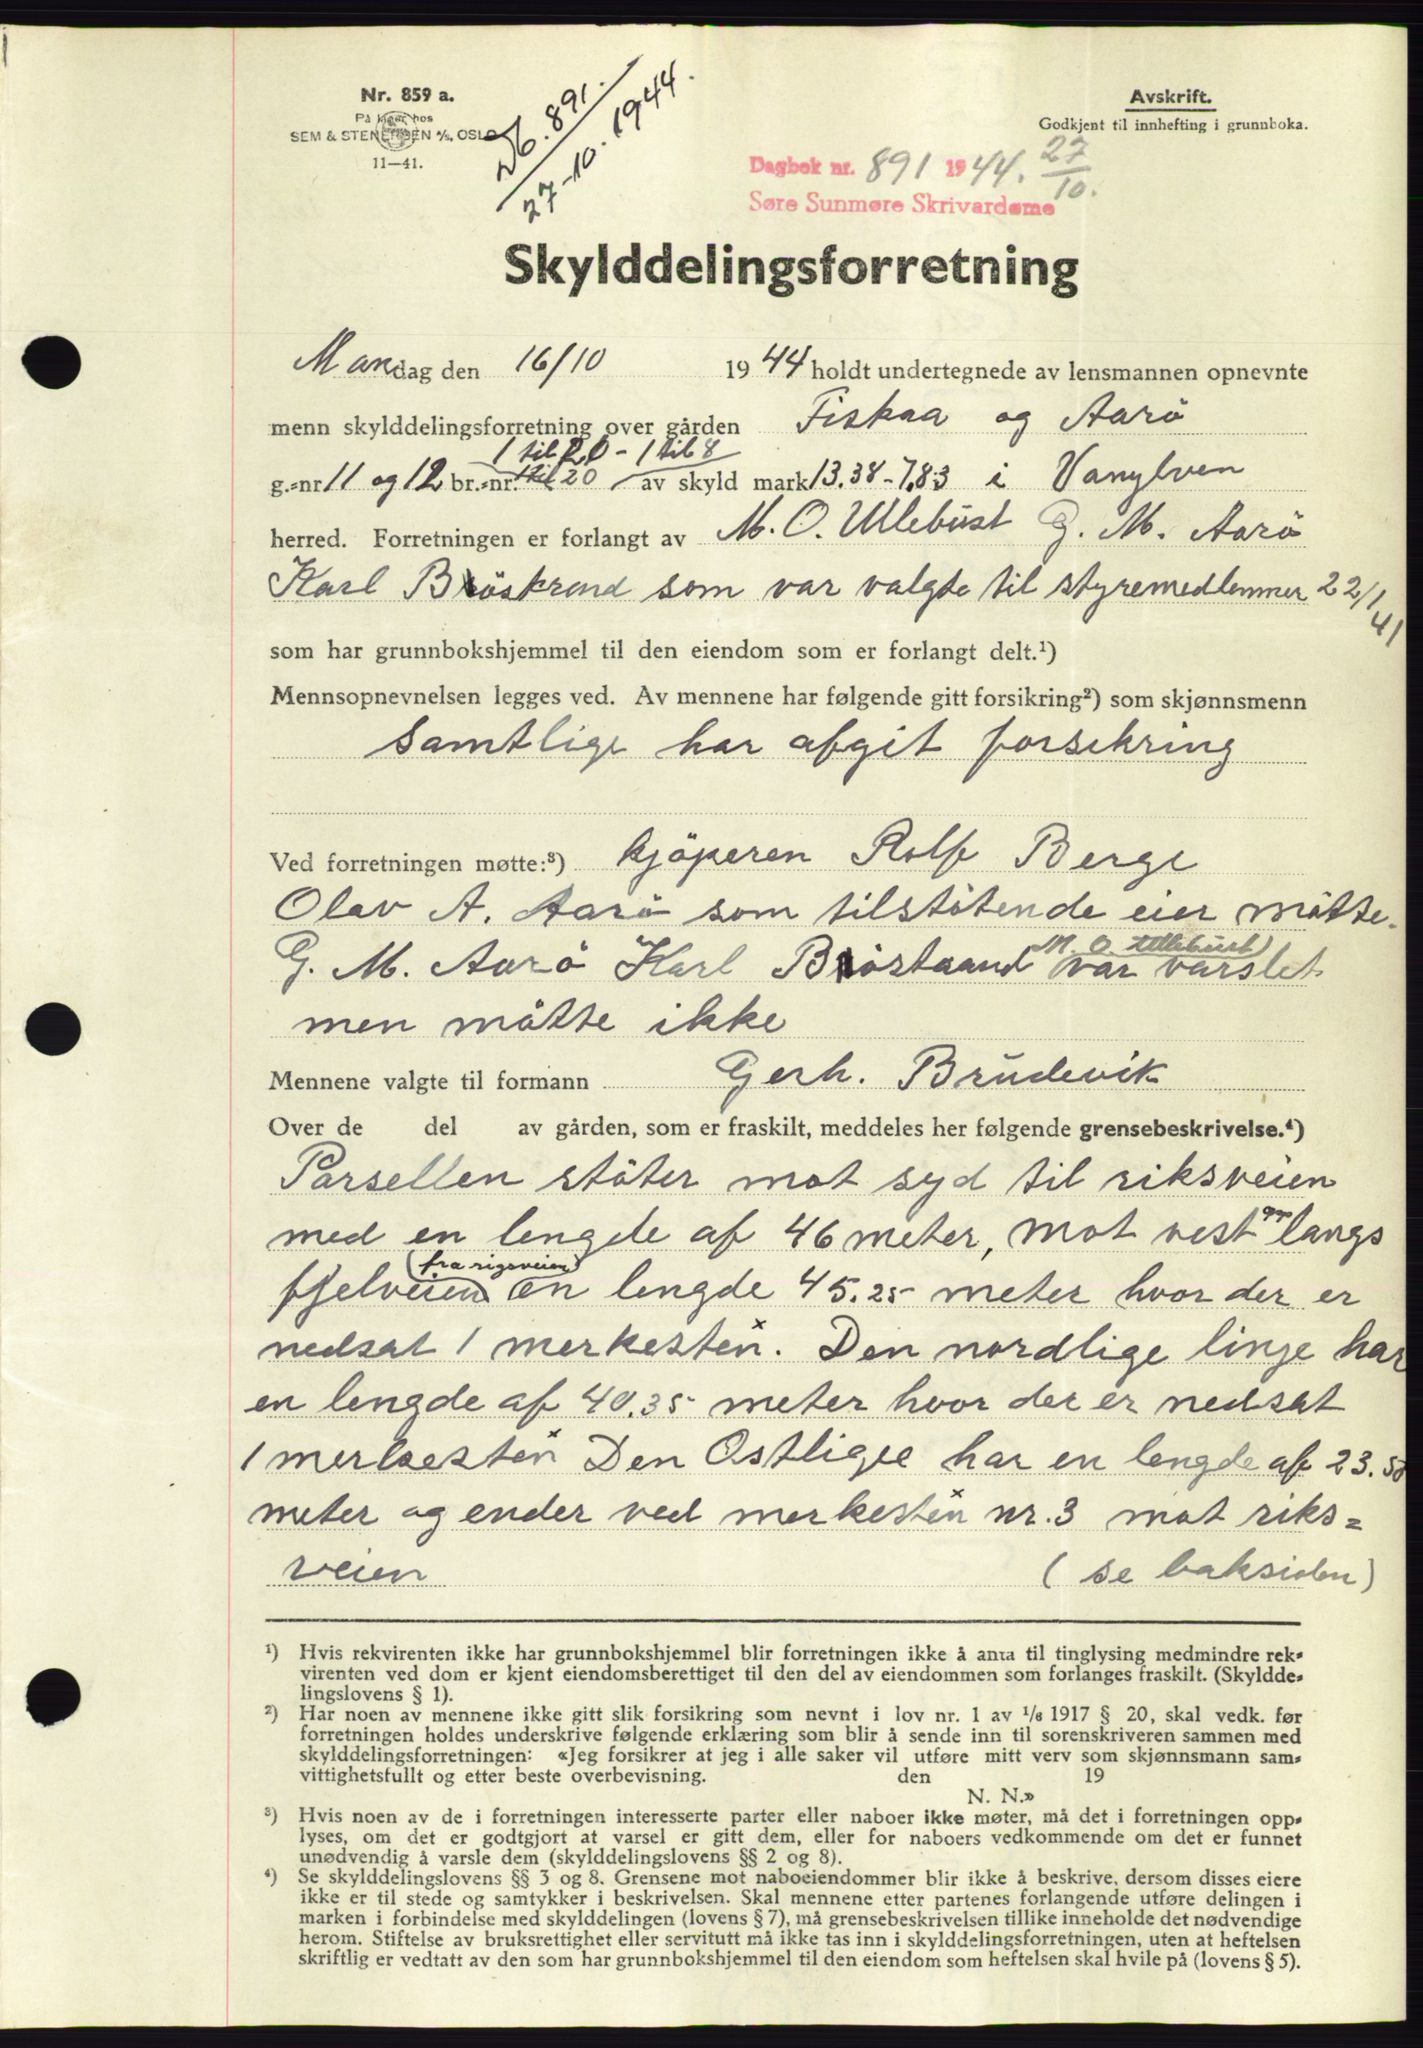 Nr. 859 a.
På lager hos
SEM & STENERSEN A/S, OSLO
11—41.
Db. 891.
27-10.1944.
Avskrift.
Godkjent til innhefting i grunnboka.
Dagbok nr. 891 1944. 27/10.
Søre Sunmøre Skrivardøme
Skylddelingsforretning
Mandag den 16/10 1944 holdt undertegnede av lensmannen opnevnte
menn skylddelingsforretning over gården Fiskaa og Aarö
1 til 20 - 1 til 8
g.-nr 11 og 12 br.-nr. 1 til 20 av skyld mark 13.38-7.83 i Vanylven
herred. Forretningen er forlangt av M. O. Ullebust G. M. Aarö
Karl Böstrand som var valgte til styremedlemmer 22/1 41
som har grunnbokshjemmel til den eiendom som er forlangt delt.¹)
Mennsopnevnelsen legges ved. Av mennene har følgende gitt forsikring²) som skjønnsmenn
samtlige har afgit forsekring
Ved forretningen møtte:³) kjöperen Rolf Berge
Olav A. Aarö som tilstötende eier mötte.
M. O. Ullebust
G. M. Aarö Karl Böstrand var varslet
men mötte ikke
Mennene valgte til formann Gerh. Brudevik
Over de del av gården, som er fraskilt, meddeles her følgende grensebeskrivelse.⁴)
Parsellen stöter mot syd til riksveien
med en lengde af 46 meter, mot vest langs
(fra rigsveien)
fjelveien en lengde 45.25 meter hvor der er
nedsat 1 merkesten x. Den nordlige linje har
en lengde af 40.35 meter hvor der er nedsat
1 merkesten x Den Ostlige har en lengde af 23.50
meter og ender ved merkesten x nr. 3 mot riks=
veien (se baksiden)
¹) Hvis rekvirenten ikke har grunnbokshjemmel blir forretningen ikke å anta til tinglysing medmindre rek-
virenten ved dom er kjent eiendomsberettiget til den del av eiendommen som forlanges fraskilt. (Skyldde-
lingslovens § 1).
²) Har noen av mennene ikke gitt slik forsikring som nevnt i lov nr. 1 av 1/6 1917 § 20, skal vedk. før
forretningen holdes underskrive følgende erklæring som blir å sende inn til sorenskriveren sammen med
skylddelingsforretningen: «Jeg forsikrer at jeg i alle saker vil utføre mitt verv som skjønnsmann sam-
vittighetsfullt og etter beste overbevisning. den 19
N. N.»
³) Hvis noen av de i forretningen interesserte parter eller naboer ikke møter, må det i forretningen opp-
lyses, om det er godtgjort at varsel er gitt dem, eller for naboers vedkommende om det er funnet
unødvendig å varsle dem (skylddelingslovens §§ 2 og 8).
⁴) Se skylddelingslovens §§ 3 og 8. Grensene mot naboeiendommer blir ikke å beskrive, dersom disses eiere
ikke er til stede og samtykker i beskrivelsen. Skal mennene etter partenes forlangende utføre delingen i
marken i forbindelse med skylddelingen (lovens § 7), må grensebeskrivelsen tillike inneholde det nødvendige
herom. Stiftelse av bruksrettighet eller servitutt må ikke tas inn i skylddelingsforretningen, uten at heftelsen
skriftlig er vedtatt av den som har grunnbokshjemmel til den eiendom som heftelsen skal hvile på (lovens § 5).